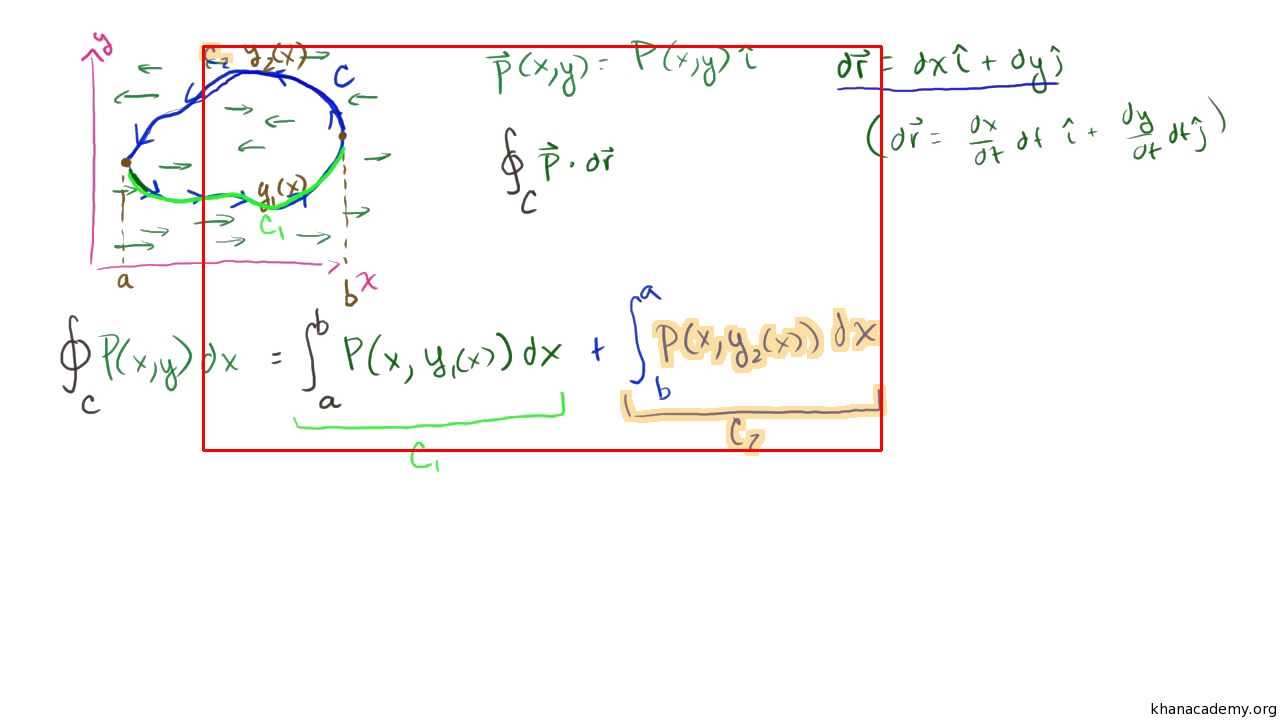 y
C₂ y₂(x)
C
y₁(x)
C₁
a
b
x
p⃗(x,y) = P(x,y) î
∮_C p⃗ · dr⃗
dr⃗ = dx î + dy ĵ
(dr⃗ = dx/dt dt î + dy/dt dt ĵ)
∮_C P(x,y) dx = ∫_a^b P(x, y₁(x)) dx + ∫_b^a P(x, y₂(x)) dx
C₁ C₂
khanacademy.org